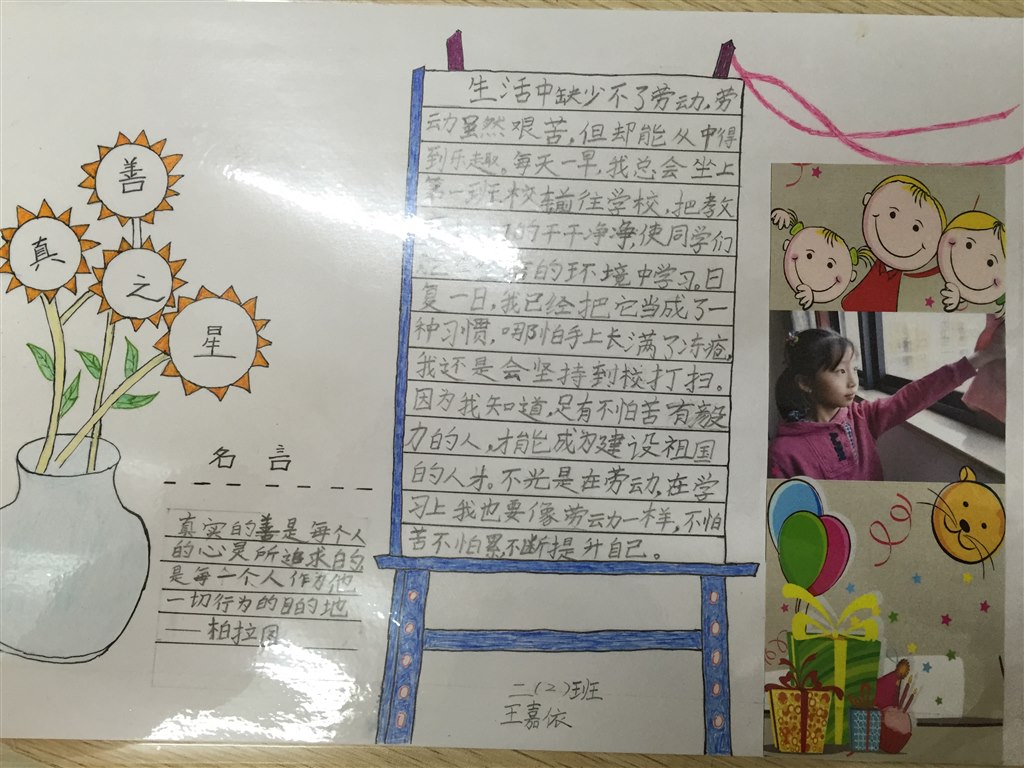 善
真
之
星
名言
真实的善是每个人
的心灵所追求的,
是每一个人作为他
一切行为的目的地
——柏拉图
生活中缺少不了劳动,劳
动虽然艰苦,但却能从中得
到乐趣。每天一早,我总会坐上
第一班校车前往学校,把教
的干干净净,使同学们
的环境中学习。日
复一日,我已经把它当成了一
种习惯,哪怕手上长满了冻疮,
我还是会坚持到校打扫。
因为我知道,足有不怕苦有毅
力的人,才能成为建设祖国
的人才。不光是在劳动,在学
习上我也要像劳动一样,不怕
苦不怕累,不断提升自己。
二(2)班
王嘉依